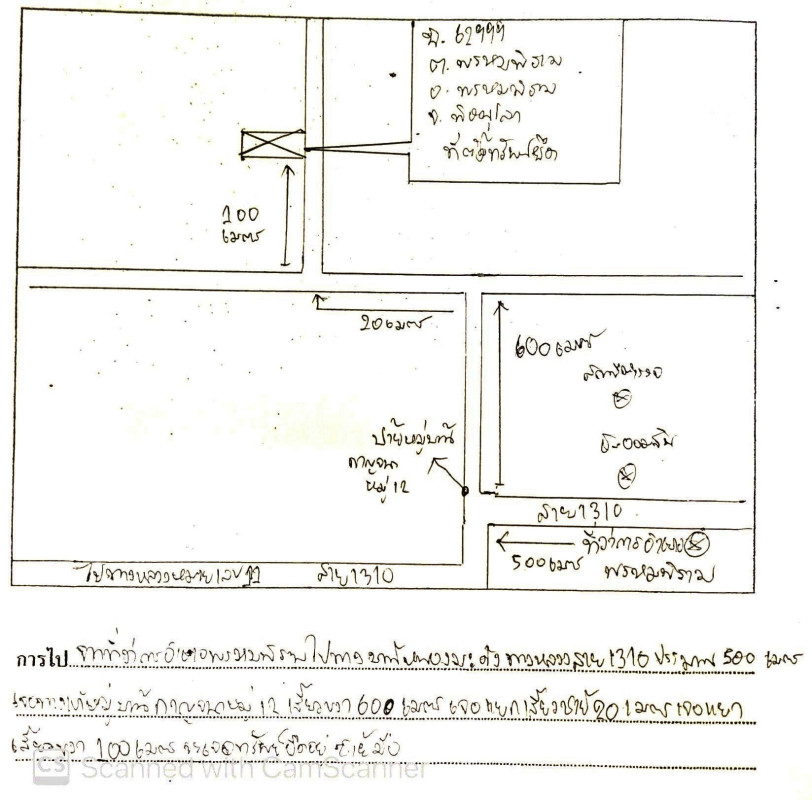 ฉ. 62999
ต. พรหมพิราม
อ. พรหมพิราม
จ. พิษณุโลก
ที่ตั้งทรัพย์ยึด
100
เมตร
20 เมตร
600 เมตร
สถานีตำรวจ
ธ.ออมสิน
ป้ายหมู่บ้าน
กาญจนา
หมู่ 12
สาย 1310
ที่ว่าการอำเภอ
500 เมตร
พรหมพิราม
ไปทางหลวงหมายเลข 11 สาย 1310
การไป จากที่ว่าการอำเภอพรหมพิรามไปทางบ้าน ทางหลวงสาย 1310 ประมาณ 500 เมตร
หมู่บ้านกาญจนาหมู่ 12 เลี้ยวขวา 600 เมตร เจอแยกเลี้ยวซ้าย 20 เมตร เจอแยก
เลี้ยวขวา 100 เมตร จะเจอทรัพย์ยึดอยู่ซ้ายมือ
CS Scanned with CamScanner